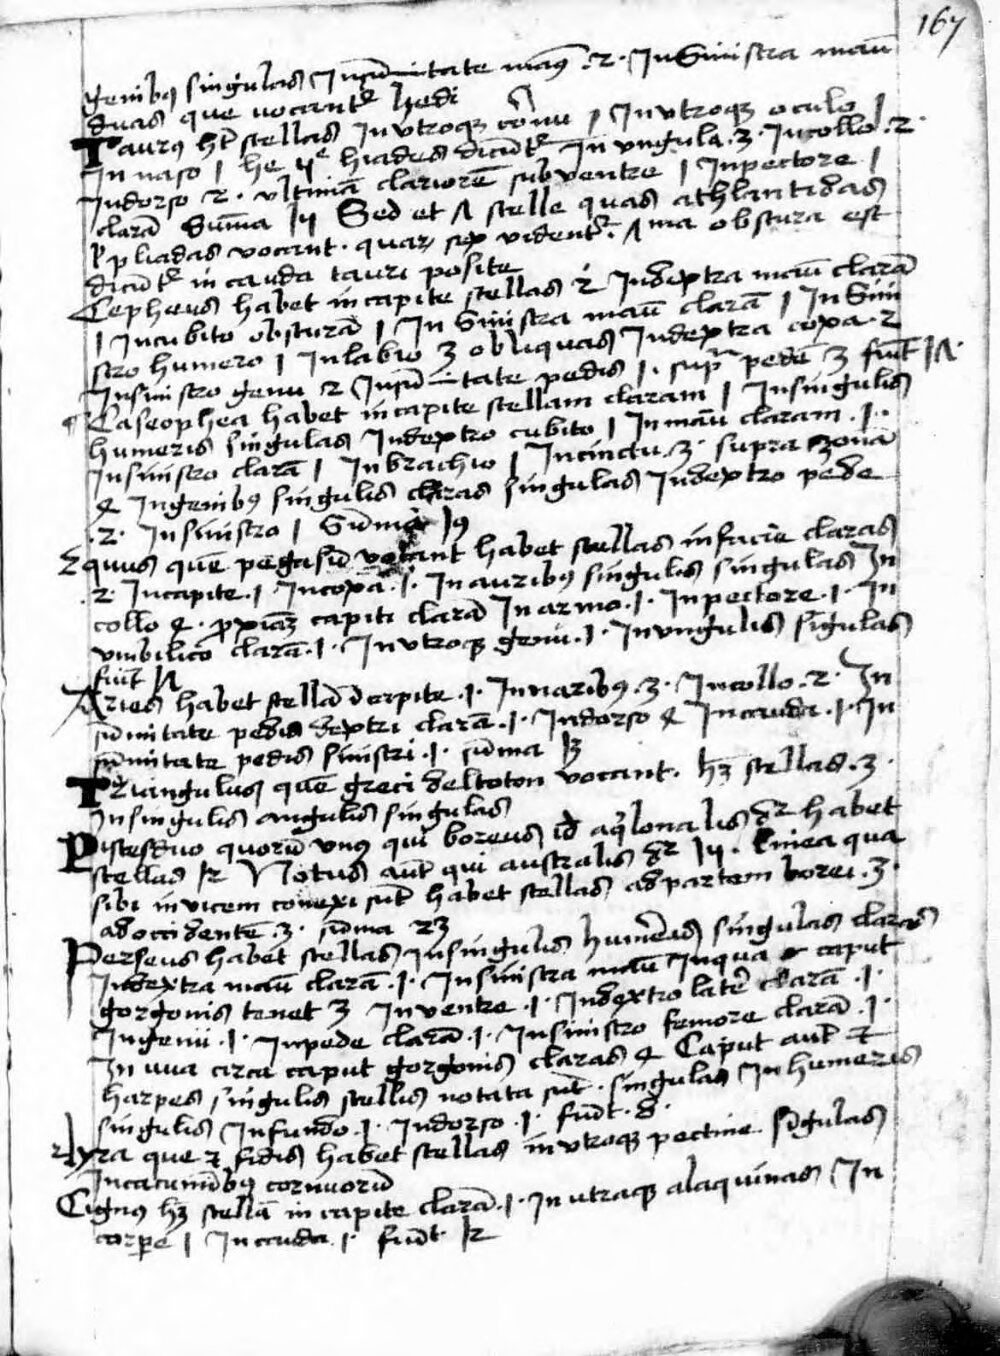 167
genibus singulas In sumitate manus .2. In Sinistra manu
duas que vocantur hedi
Taurus habet stellas In utroque cornu 1 In utroque oculo 1
In naso 1 he hiades dicuntur In ungula .3. In collo .2.
In dorso 2 . ultimam clariorem sub ventre 1 In pectore 1
claram Summa Sed et stelle quas athlantidas
pliadas vocant . quarum videntur ma obscura est
dicuntur in cauda tauri posite
Cepheus habet in capite stellas 2 In dextra manu claram
1 In cubito obscuram 1 In Sinistra manu claram 1 In Sini
stro humero 1 In labio 3 obliquas In dextra coxa . 2
In sinistro genu 2 In sumitate pedis 1 . super pedem 3 fiunt
Caseophea habet in capite stellam claram 1 In singulis
humeris singulas In dextro cubito 1 In manu claram .1.
In sinistro claram 1 In brachio 1 In cinctu .3. supra zonam
4 In genibus singulis claras singulas In dextro pede
.2. In sinistro 1 Summa 19
Equus quem pegasum vocant habet stellas in facie claras
2 In capite .1 In coxa .1. In auribus singulis singulas In
collo 4 . proximam capiti claram In armo .1. In pectore .1. In
umbilico claram .1. In utroque genu .1. In ungulis singulas
fiunt
Aries habet stellam In capite .1. In naribus .3. In collo .2. In
sumitate pedis dextri claram .1. In dorso 4 In cauda .1. In
sumitate pedis sinistri .1. summa
Triangulus quem greci deltoton vocant . habet stellas .3.
In singulis angulis singulas
Pisces duo quorum unus qui boreus id aquilonalis dicitur habet
stellas 12 Notus autem qui australis dicitur . linea qua
sibi in vicem conexi sunt habet stellas ad partem borei .3.
ad occidentem .3. summa
Perseus habet stellas In singulis humeris singulas claras
In dextra manu claram .1. In sinistra manu In qua caput
gorgonis tenet 3 In ventre .1. In dextro latere claram .1.
In genu .1. In pede claram .1. In sinistro femore claram .1.
In circa caput gorgonis claras 4 Caput autem et
harpes singulis stellis notata sunt . singulas In humeris
singulis In fundo .1. In dorso .1. fiunt . 8.
lyra que et fidis habet stellas in utroque pectine singulas
In cacuminibus cornuorum
Cignus habet stellam in capite claram .1. In utraque ala quinas In
corpore 1 In cauda .1. fiunt 12